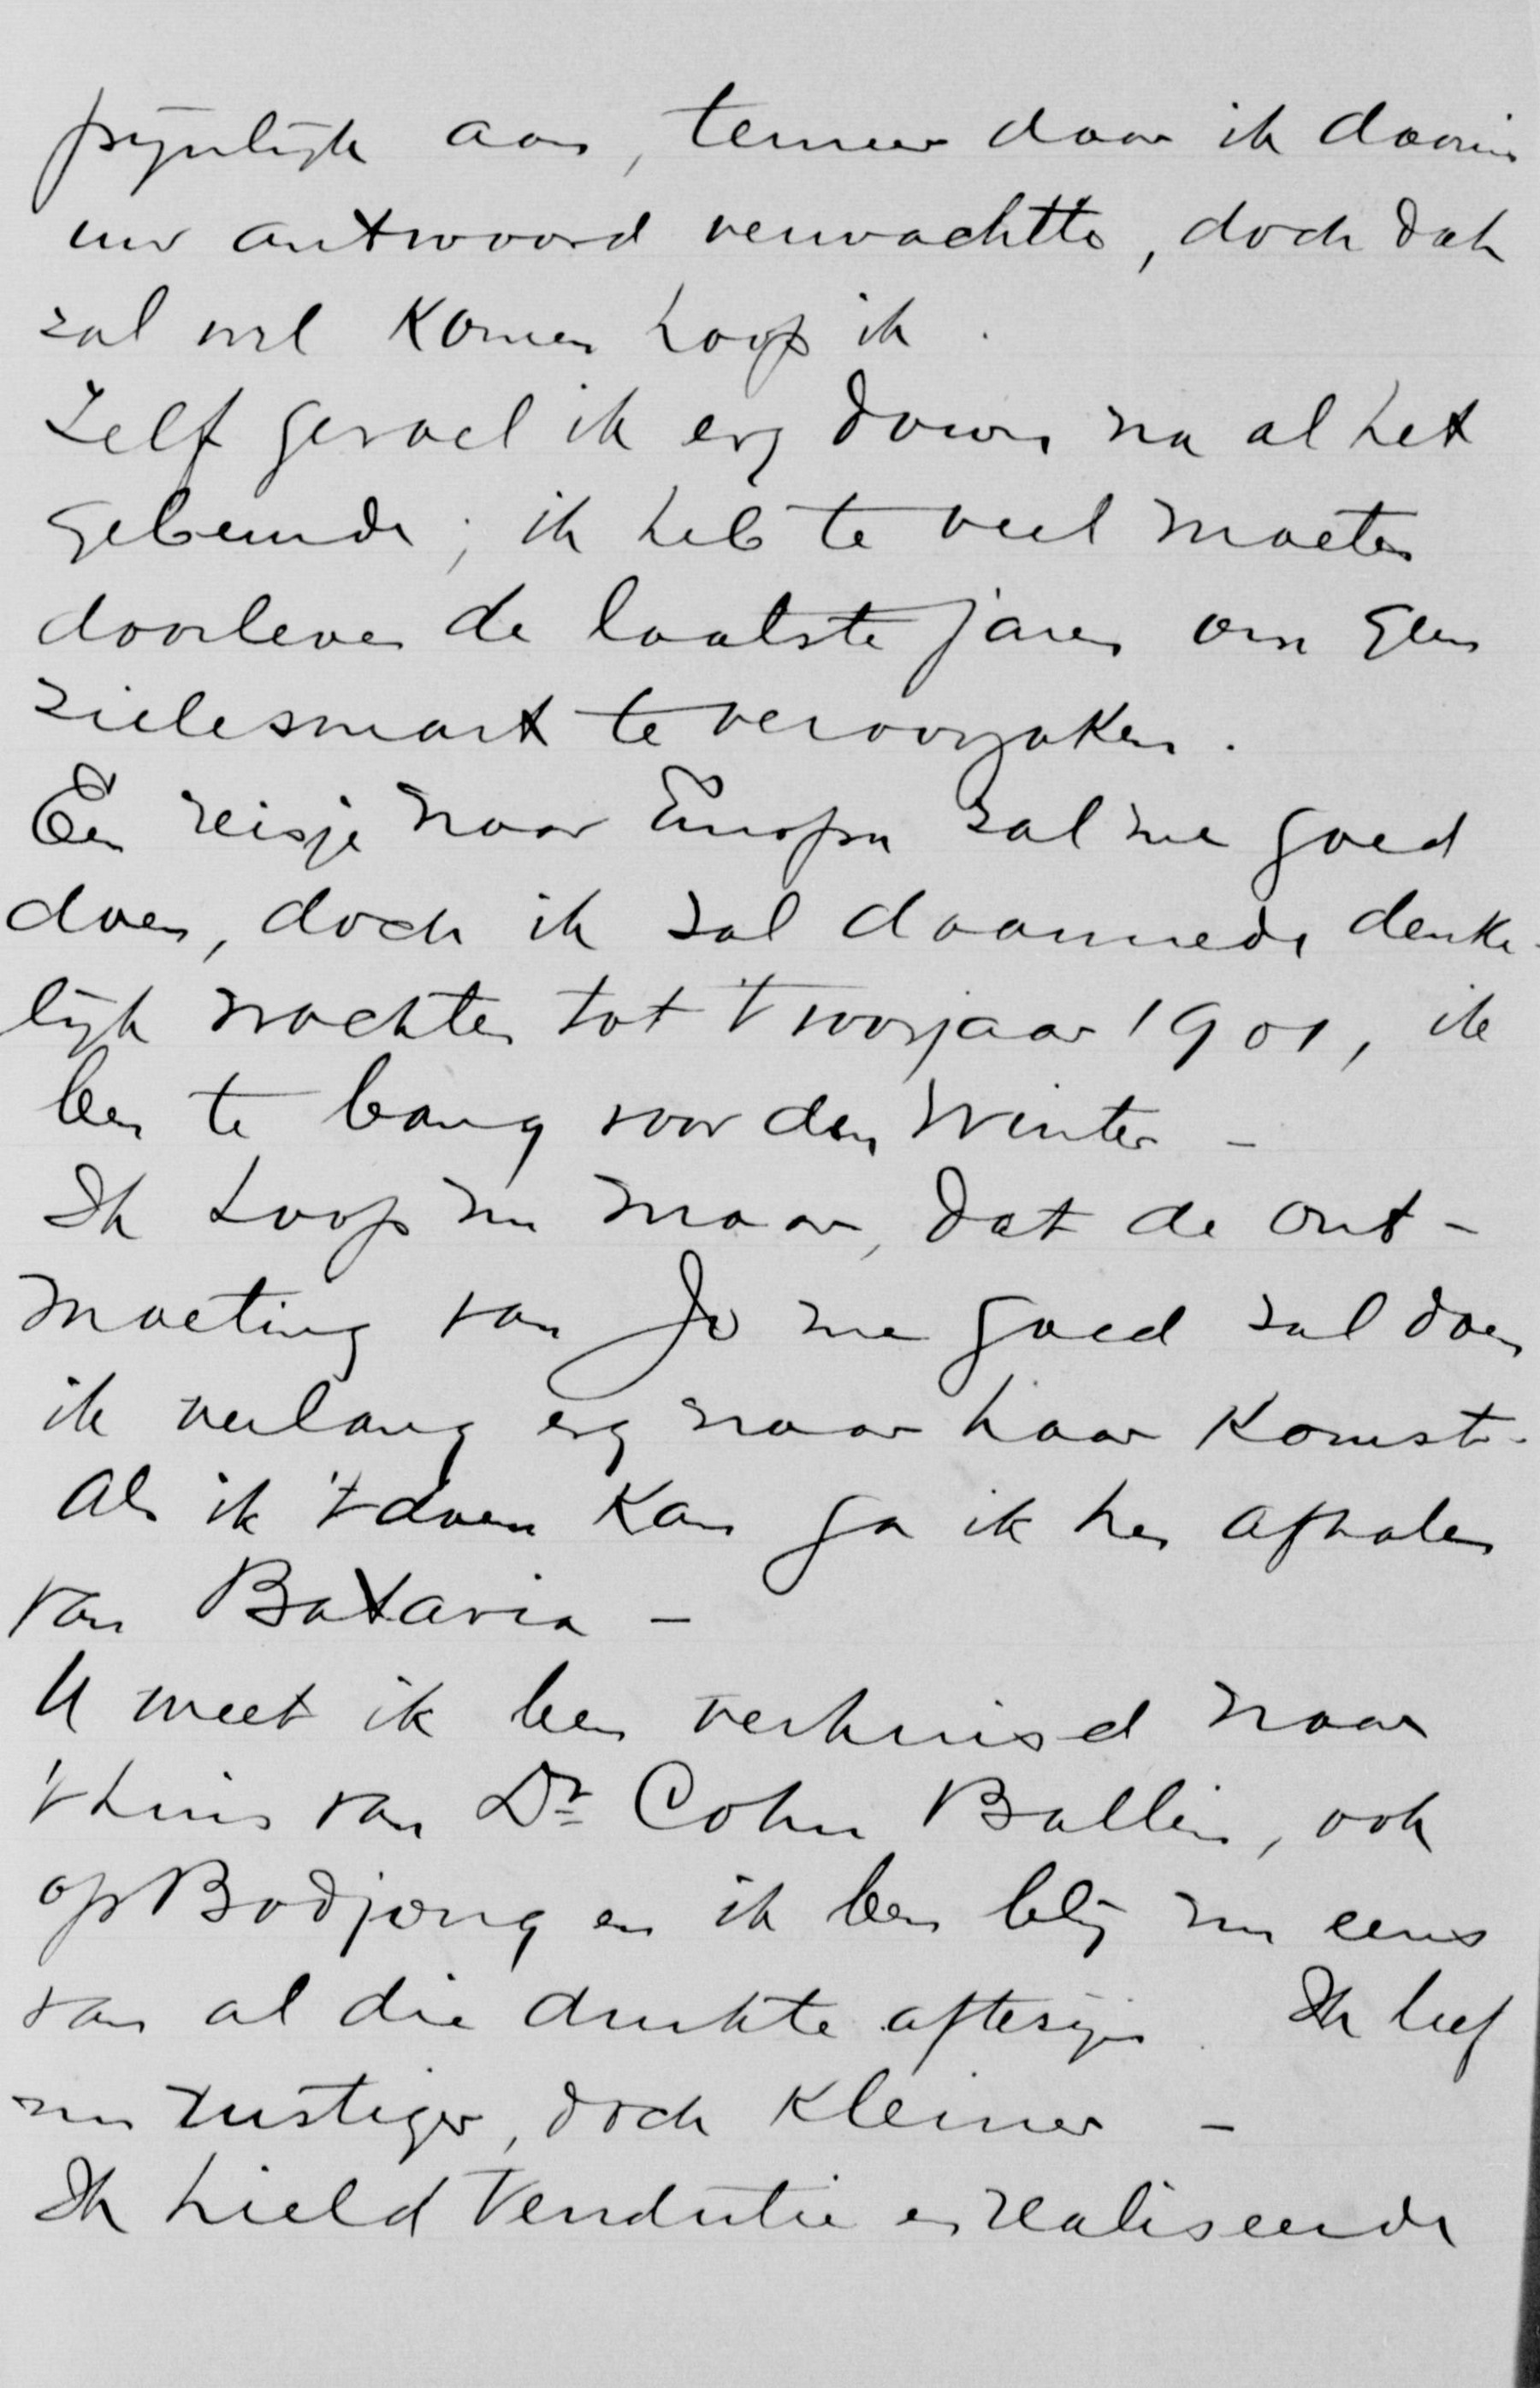 pijnlijk aan, temeer daar ik daarin
uw antwoord verwachtte, doch dat
zal wel komen hoop ik.
Zelf gevoel ik erg down na al het
gebeurde; ik heb te veel moeten
doorleven de laatste jaren om geen
zielesmart te veroorzaken.
Een reisje naar Europa zal me goed
doen, doch ik zal daarmede denke-
lijk wachten tot 't voorjaar 1901, ik
ben te bang voor den winter -
Ik hoop nu maar, dat de ont-
moeting van Jo me goed zal doen
ik verlang erg naar haar komst.
Als ik 't doen kan ga ik hen afhalen
van Batavia -
U weet ik ben verhuisd naar
't huis van Dr Cohn Ballin, ook
op Bodjong en ik ben blij nu eens
van al die drukte af te zijn. Ik leef
nu rustiger, doch kleiner -
Ik hield Vendutie en realiseerde